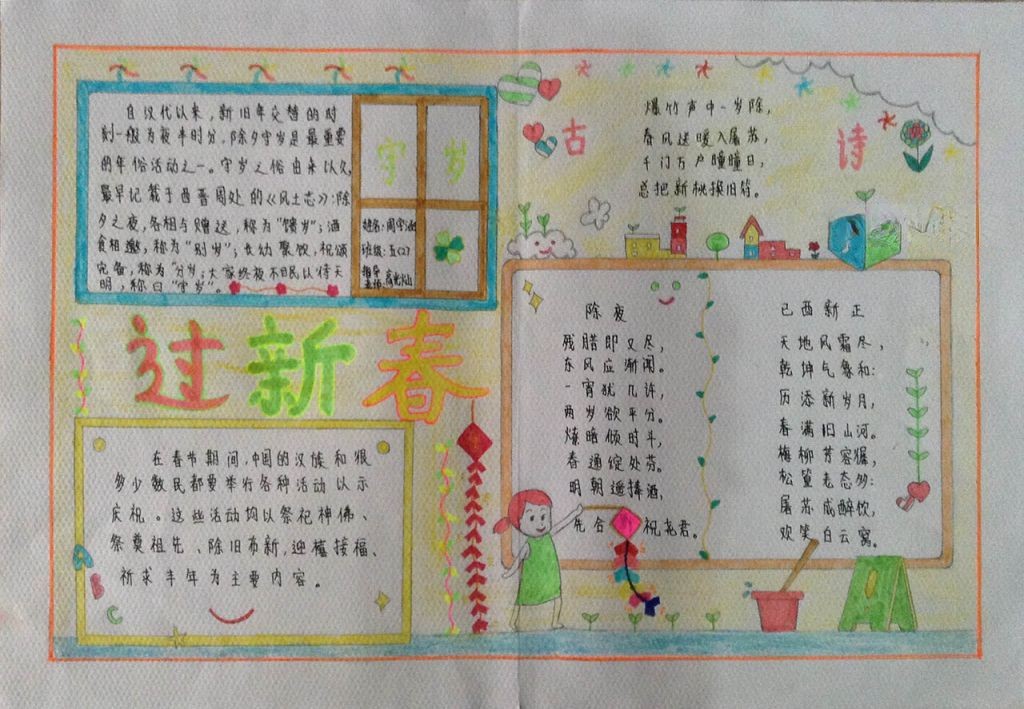 自汉代以来，新旧年交替的时
刻一般为夜半时分。除夕守岁是最重要
的年俗活动之一。守岁之俗由来以久，
最早记载于西晋周处的《风土志》:除
夕之夜，各相与赠送，称为"馈岁"；酒
食相邀，称为"别岁"；长幼聚饮，祝颂
完备，称为"分岁；大家终夜不眠以待天
明，称曰"守岁"。
守岁
姓名:周宇涵
班级:五(2)
指导
老师:高光灿
过新春
在春节期间，中国的汉族和很
多少数民都要举行各种活动以示
庆祝。这些活动均以祭祀神佛、
祭奠祖先、除旧布新，迎禧接福、
祈求丰年为主要内容。
A
B
C
古诗
爆竹声中一岁除，
春风送暖入屠苏，
千门万户曈曈日，
总把新桃换旧符。
除夜
残腊即又尽，
东风应渐闻。
一宵犹几许，
两岁欲平分。
燎暗倾时斗，
春通绽处芬。
明朝遥捧酒，
先合祝尧君。
己酉新正
天地风霜尽，
乾坤气象和:
历添新岁月，
春满旧山河。
梅柳芳容徲，
松篁老态多:
屠苏成醉饮，
欢笑白云窝。